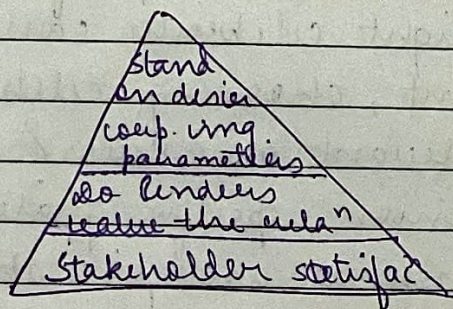 Stand
on desier
coup. ving
parameters
do lenders
value the relaⁿ
Stakeholder satisfac